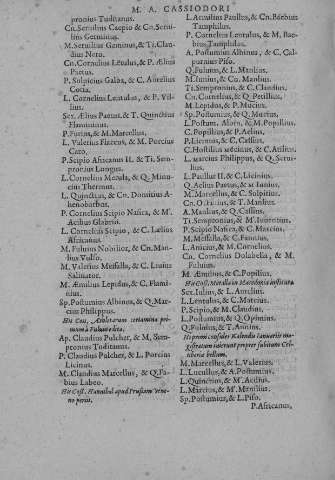 M. A. CASSIODORI
pronius Tuditanus.
Cn. Servilius Caepio & Cn. Servilius Geminus.
M. Servilius Geminus, & Ti. Claudius Nero.
Cn. Cornelius Letulus, & P. Ælius Paetus.
P. Sulpicius Galba, & C. Aurelius Cotta.
L. Cornelius Lentulus, & P. Villius.
Sex. Ælius Paetus, & T. Quinctius Flamininus.
P. Furius, & M. Marcellus.
L. Valerius Flaccus, & M. Porcius Cato.
P. Scipio Africanus II. & Ti. Sempronius Longus.
L. Cornelius Merula, & Q. Minucius Thermus.
L. Quinctius, & Cn. Domitius Ahenobarbus.
P. Cornelius Scipio Nasica, & M'. Acilius Glabrio.
L. Cornelius Scipio, & C. Lælius Africanus.
M. Fulvius Nobilior, & Cn. Manlius Vulso.
M. Valerius Messalla, & C. Livius Salinator.
M. Æmilius Lepidus, & C. Flaminius.
Sp. Postumius Albinus, & Q. Marcius Philippus.
His Coss. Athletarum certamina primum à Fulvio edita.
Ap. Claudius Pulcher, & M. Sempronius Tuditanus.
P. Claudius Pulcher, & L. Porcius Licinus.
M. Claudius Marcellus, & Q. Fabius Labeo.
His Coss. Hannibal apud Prusiam veneno periit.
L. Aemilius Paullus, & Cn. Baebius Tamphilus.
P. Cornelius Lentulus, & M. Baebius Tamphilus.
A. Postumius Albinus, & C. Calpurnius Piso.
Q. Fulvius, & L. Manlius.
M. Iunius, & Cn. Manlius.
Ti. Sempronius, & C. Claudius.
Cn. Cornelius, & Q. Petilius.
M. Lepidus, & P. Mucius.
Sp. Postumius, & Q. Mucius.
L. Postum. Albin. & M. Popillius.
C. Popillius, & P. Aelius.
P. Licinius, & C. Cassius.
C. Hostilius Mancinus, & C. Atilius.
L. Marcius Philippus, & Q. Servilius.
L. Paullus II. & C. Licinius.
Q. Aelius Paetus, & M. Iunius.
M. Marcellus, & C. Sulpitius.
Cn. Octavius, & T. Manlius.
A. Manlius, & Q. Cassius.
Ti. Sempronius, & M. Iuventius.
P. Scipio Nasica, & C. Marcius.
M. Messalla, & C. Fannius.
L. Anicius, & M. Cornelius.
Cn. Cornelius Dolabella, & M. Fulvius.
M. Æmilius, & C. Popilius.
Sex. Iulius, & L. Aurelius.
L. Lentulus, & C. Marcius.
P. Scipio, & M. Claudius.
L. Postumius, & Q. Opimius.
Q. Fulvius, & T. Annius.
Hi primi consules Kalendis Ianuariis magistratum inierunt propter subitum Celtiberiae bellum.
M. Marcellus, & L. Valerius.
L. Lucullus, & A. Postumius.
L. Quinctius, & M'. Acilius.
L. Marcius, & M'. Manilius.
Sp. Postumius, & L. Piso.
P. Africanus,